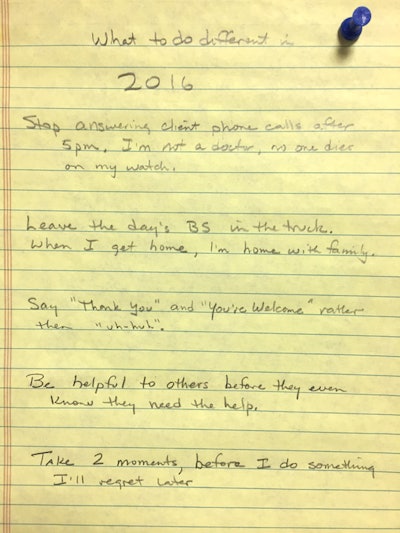 What to do different in
2016
Stop answering client phone calls after
5pm. I'm not a doctor, no one dies
on my watch.
Leave the day's BS in the truck.
When I get home, I'm home with family.
Say "Thank You" and "You're Welcome" rather
then "uh-huh".
Be helpful to others before they even
know they need the help.
Take 2 moments, before I do something
I'll regret later